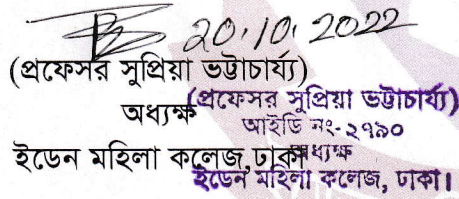 20.10.2022
(প্রফেসর সুপ্রিয়া ভট্টাচার্য্য)
অধ্যক্ষ
ইডেন মহিলা কলেজ, ঢাকা
(প্রফেসর সুপ্রিয়া ভট্টাচার্য্য)
আইডি নং-২৭৯০
অধ্যক্ষ
ইডেন মহিলা কলেজ, ঢাকা।